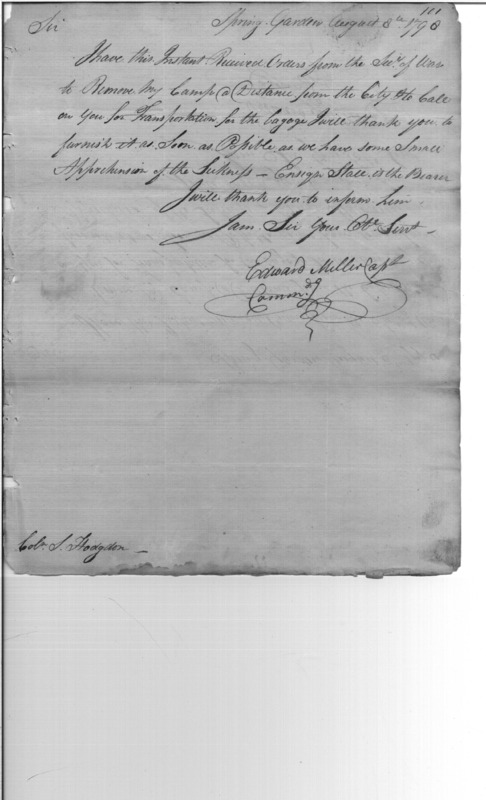 111
Spring Garden August 8th 1798
Sir
I have this Instant Received Orders from the Secy of War
to Remove my Camp a Distance from the City & to Call
on You for Transportation for the bagage I will thank you to
furnish it as Soon as Possible as we have some Small
Apprehension of the Sickness – Ensign Stall is the Bearer
I will thank you to inform him
I am Sir Your Obt. Servt –
Edward Miller Capt
Commdg
Colo. S. Hodgdon –